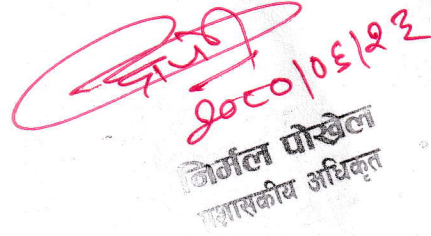 २०८०|०६|२३
निर्मल पोखेल
प्रशासकीय अधिकृत